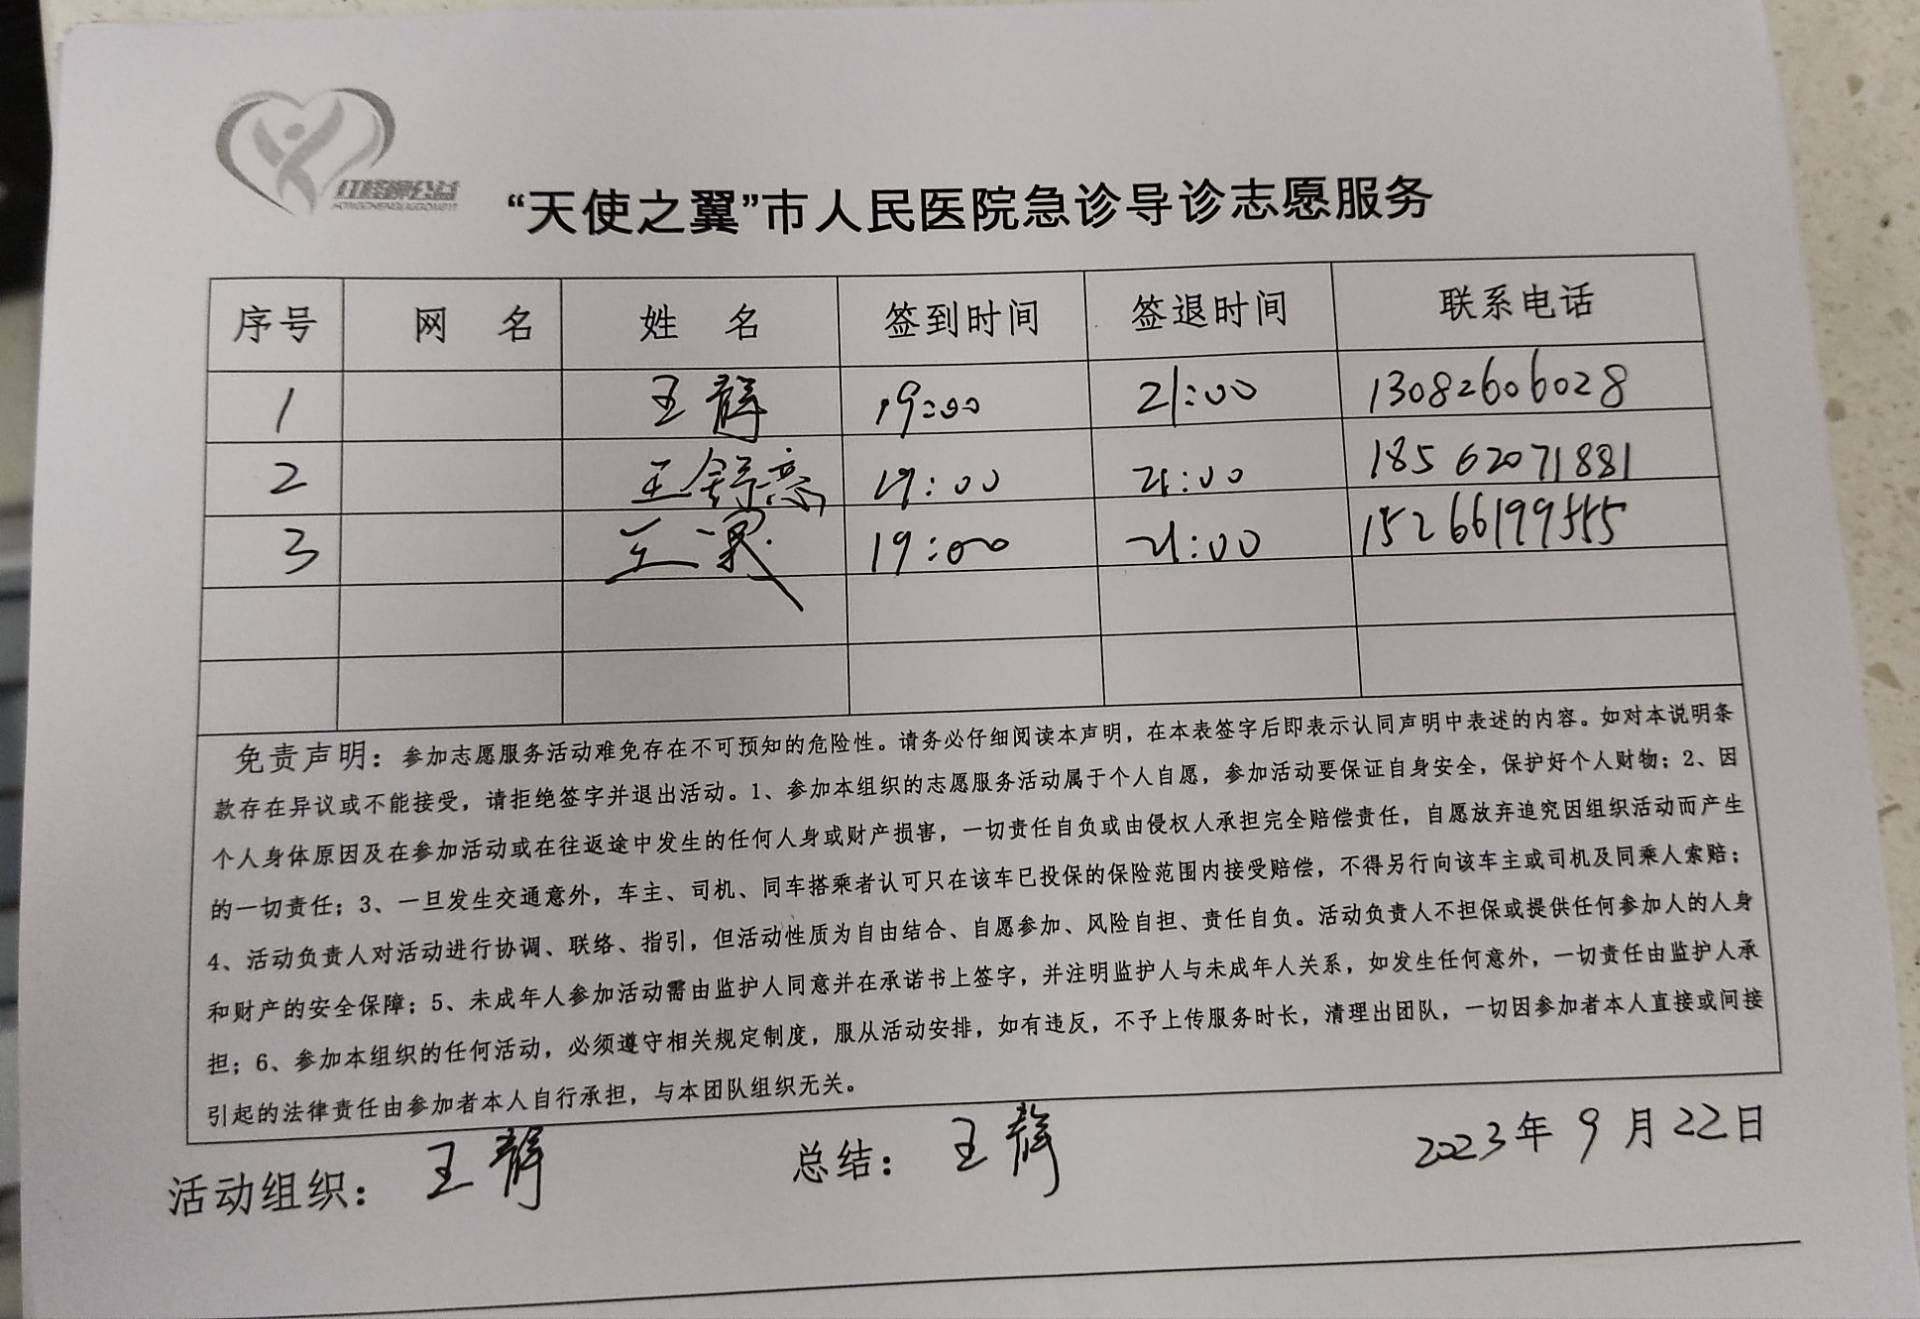 “天使之翼”市人民医院急诊导诊志愿服务
序号 网 名 姓 名 签到时间 签退时间 联系电话
1 王静 19:00 21:00 13082606028
2 王舒亮 19:00 21:00 18562071881
3 王 19:00 21:00 15266199555
免责声明：参加志愿服务活动难免存在不可预知的危险性。请务必仔细阅读本声明，在本表签字后即表示认同声明中表述的内容。如对本说明条
款存在异议或不能接受，请拒绝签字并退出活动。1、参加本组织的志愿服务活动属于个人自愿，参加活动要保证自身安全，保护好个人财物；2、因
个人身体原因及在参加活动或在往返途中发生的任何人身或财产损害，一切责任自负或由侵权人承担完全赔偿责任，自愿放弃追究因组织活动而产生
的一切责任；3、一旦发生交通意外，车主、司机、同车搭乘者认可只在该车已投保的保险范围内接受赔偿，不得另行向该车主或司机及同乘人索赔；
4、活动负责人对活动进行协调、联络、指引，但活动性质为自由结合、自愿参加、风险自担、责任自负。活动负责人不担保或提供任何参加人的人身
和财产的安全保障；5、未成年人参加活动需由监护人同意并在承诺书上签字，并注明监护人与未成年人关系，如发生任何意外，一切责任由监护人承
担；6、参加本组织的任何活动，必须遵守相关规定制度，服从活动安排，如有违反，不予上传服务时长，清理出团队，一切因参加者本人直接或间接
引起的法律责任由参加者本人自行承担，与本团队组织无关。
活动组织： 王静 总结： 王静 2023年9月22日